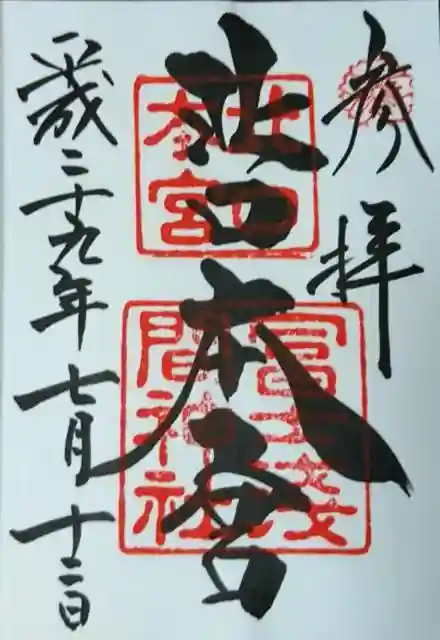 参拝
北口本宮
北口
本宮
冨士浅
間神社
平成二十九年七月十二日